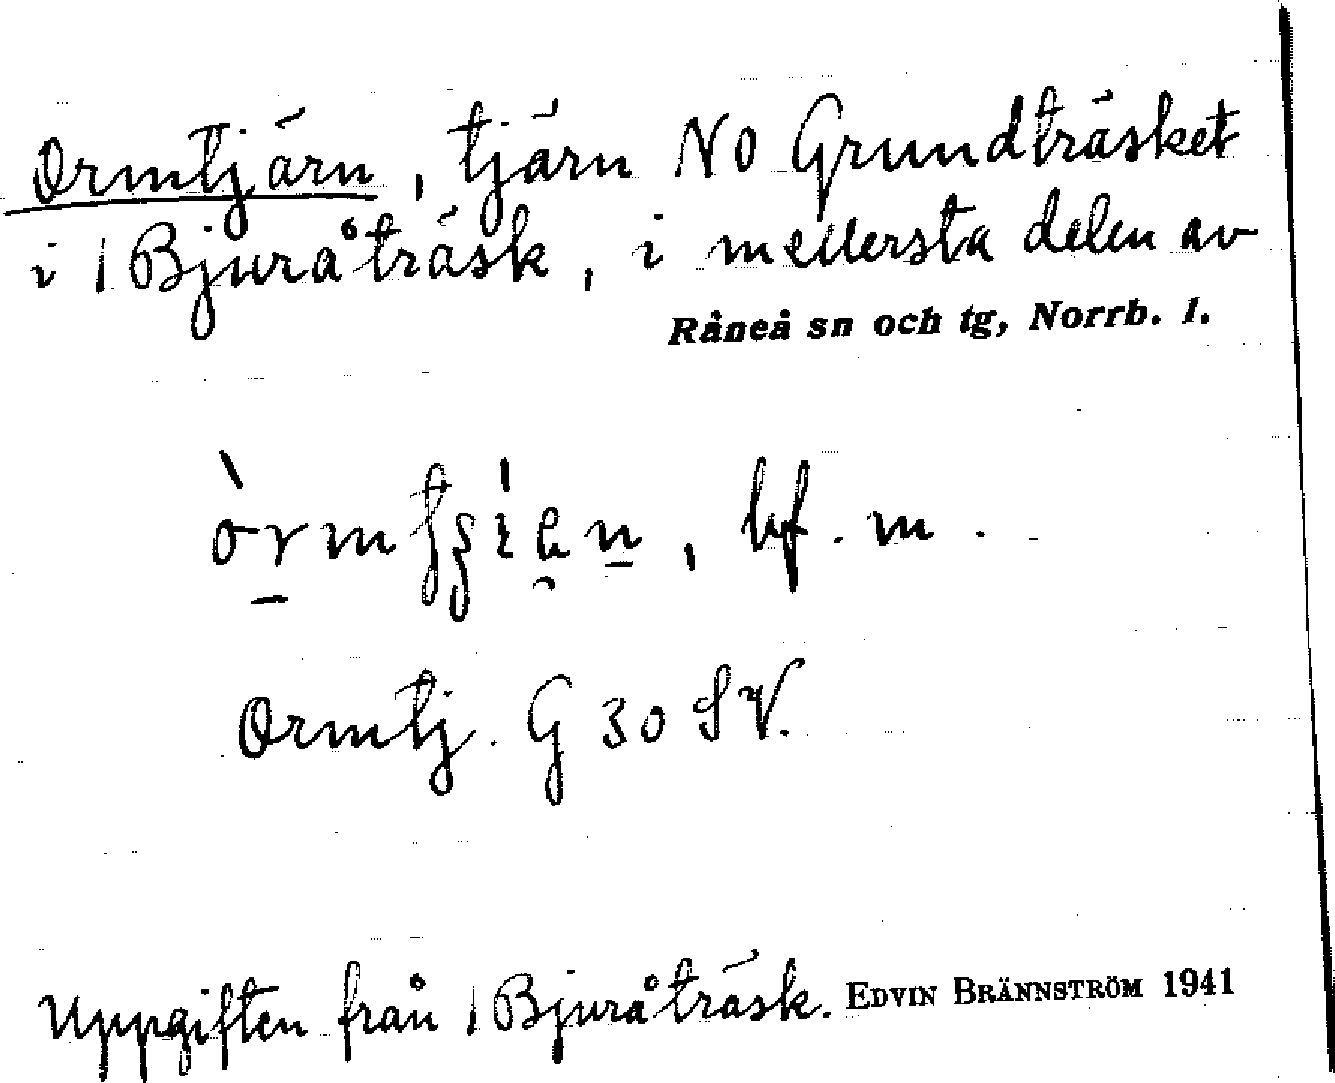 Ormtjärn, tjärn NO Grundträsket
i 1 Bjuråträsk, i mellersta delen av
Råneå sn och tg, Norrb. l.
bf. m.
Ormtj. G 30 SV.
Uppgiften från 1 Bjuråträsk. EDVIN BRÄNNSTRÖM 1941